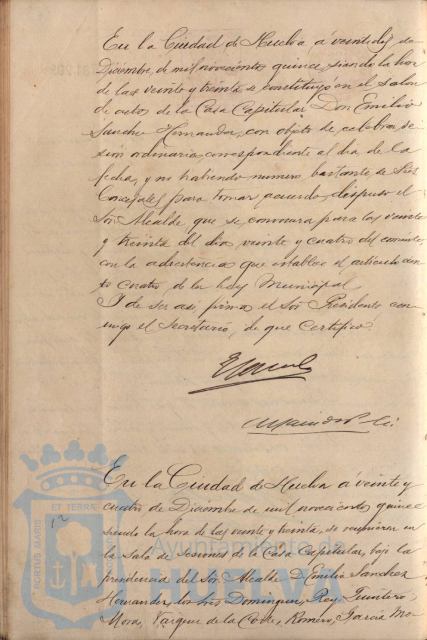 En la Ciudad de Huelva á veintidos de
Diciembre, de mil novecientos quince, siendo la hora
de las veinte y treinta se constituyó en el salon
de actos de la Casa Capitular Don Emilio
Sanchez Hernandez, con objeto de celebrar se-
sion ordinaria, correspondiente al dia de la
fecha, y no habiendo numero bastante de Sres
Concejales para tomar acuerdo, dispuso el
Sor. Alcalde que se convocara para las veinte
y treinta del dia veinte y cuatro del corriente,
con la advertencia que establece el articulo cien-
to cuatro de la Ley Municipal
Y de ser asi firma el Sor Presidente con-
migo el Secretario, de que certifico.
En la Ciudad de Huelva á veinte y
cuatro de Diciembre de mil novecientos quince
siendo la hora de las veinte y treinta, se reunieron en
la Sala de sesiones de la Casa Capitular, bajo la
presidencia del Sor. Alcalde D. Emilio Sanchez
Hernandez, los Sres Dominguez, Rey, Quintero,
Mora, Vazquez de la Corte, Romero, Garcia Mo-
PORTUS MARIS ET TERRAE
Ayuntamiento de
HUELVA